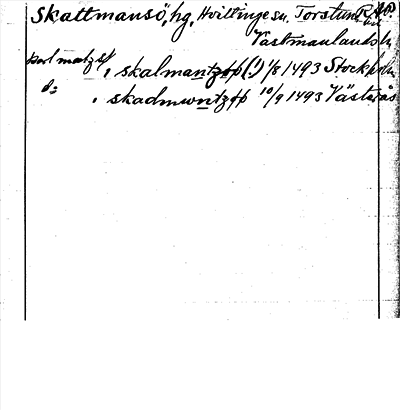 Skattmansö, hg, Vittinge sn. Torstuna
Västmanlands l.
i skalmantzøø (!) 1/8 1493 Stockholm
d:s i skadmwntzøø 10/9 1493 Västerås